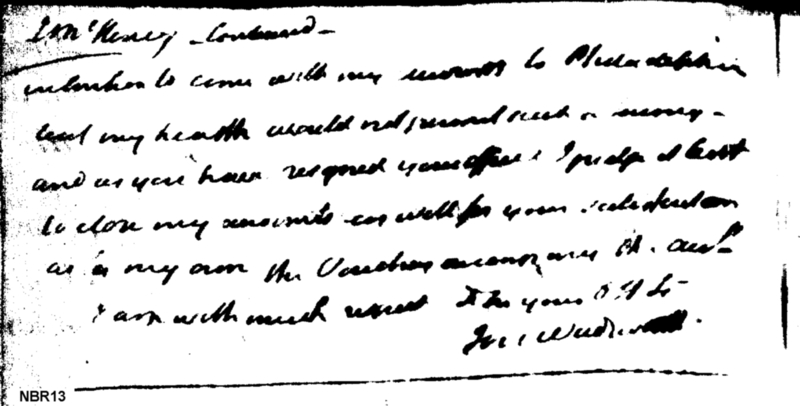 J McHenry - Continued -
intention to come with my accounts to Philadelphia
but my health would not permit such a
and as you have resigned your office I judge it best
to close my accounts as well for your satisfaction
as my own the Vouchers accompany the
I am with much respect
NBR13